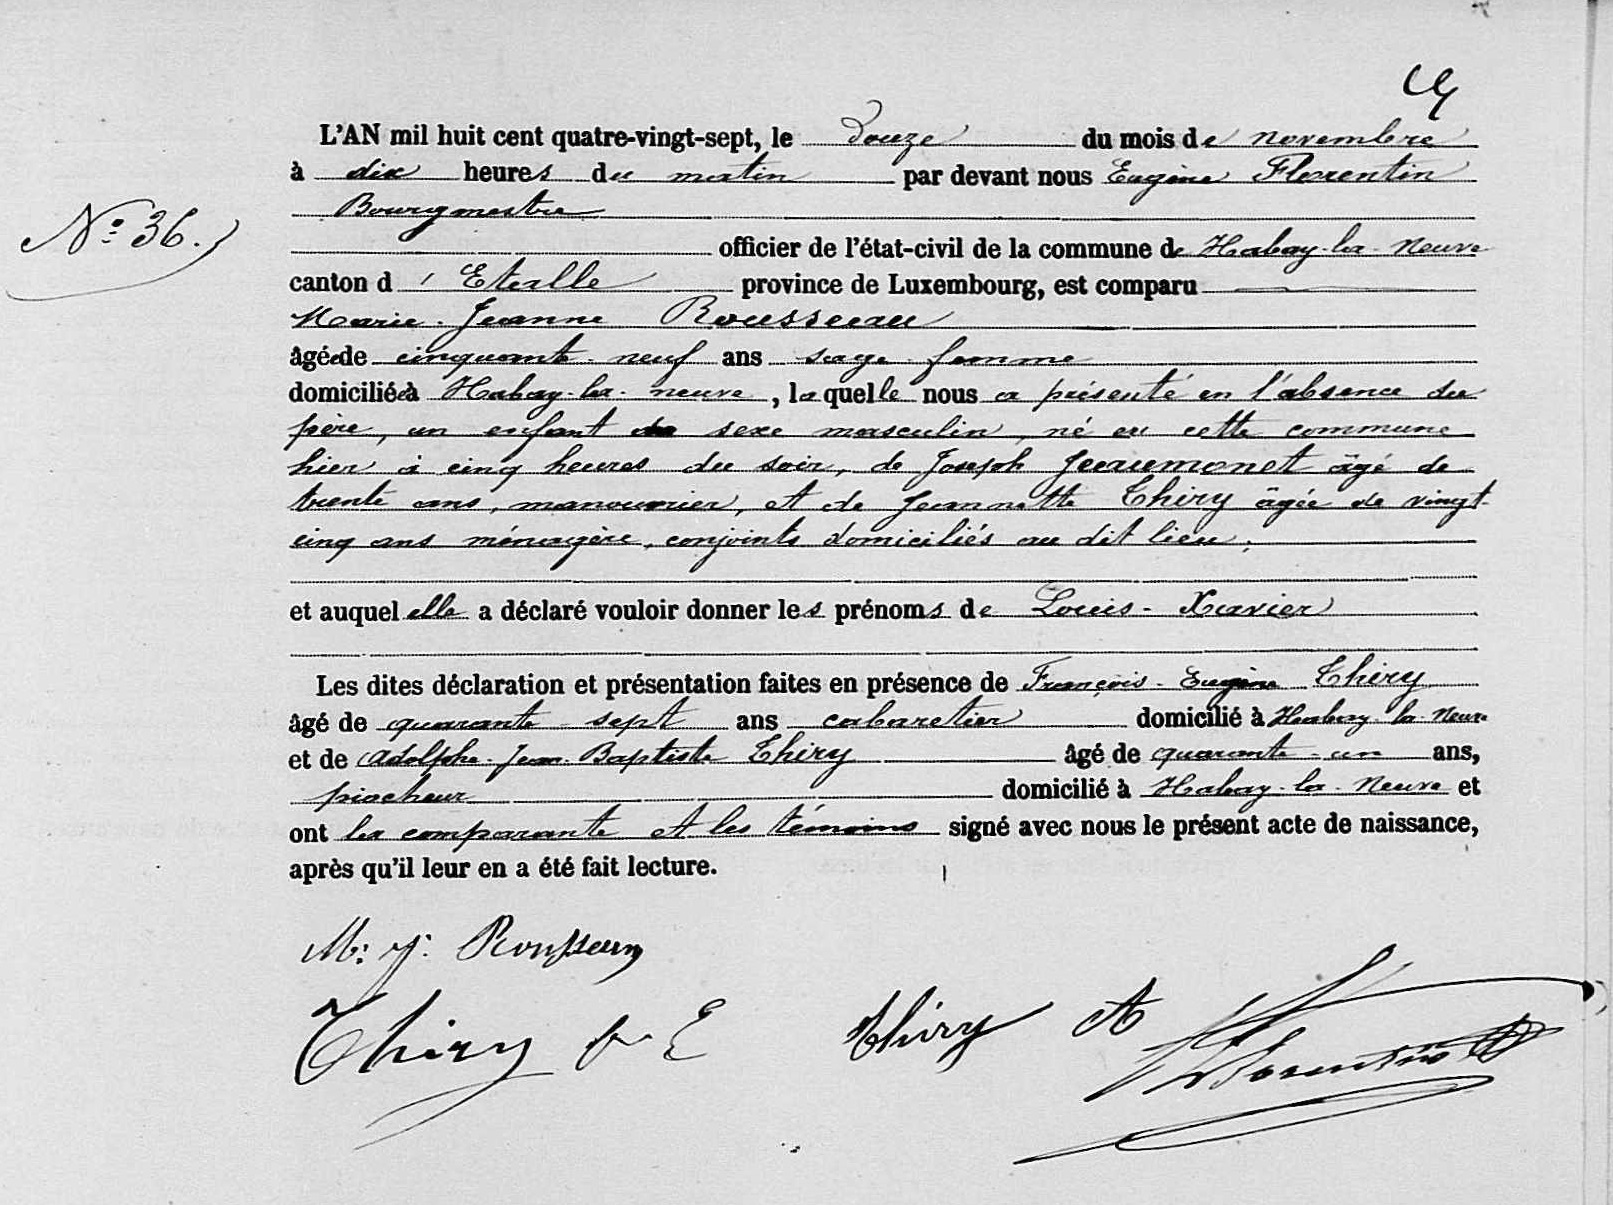 L'AN mil huit cent quatre-vingt-sept, le Douze du mois de novembre
à dix heures du matin par devant nous Eugène Florentin
Bourgmestre
N° 36.
officier de l'état-civil de la commune de Habay-la-Neuve
canton d'Etalle province de Luxembourg, est comparu
Marie-Jeanne Rousseau
âgée de cinquante-neuf ans sage-femme
domiciliée à Habay-la-neuve, laquelle nous a présenté en l'absence du
père, un enfant de sexe masculin, né en cette commune
hier à cinq heures du soir, de Joseph Jeaumonet âgé de
trente ans, manouvrier, et de Jeannette Thiry âgée de vingt-
cinq ans ménagère, conjoints domiciliés au dit lieu.
et auquel elle a déclaré vouloir donner les prénoms de Louis-Xavier
Les dites déclaration et présentation faites en présence de François-Eugène Thiry
âgé de quarante-sept ans cabaretier domicilié à Habay-la-Neuve
et de Adolphe-Jean-Baptiste Thiry âgé de quarante-un ans,
piocheur domicilié à Habay-la-Neuve et
ont la comparante et les témoins signé avec nous le présent acte de naissance,
après qu'il leur en a été fait lecture.
M. J. Rousseau
Thiry fr E Thiry A Florentin